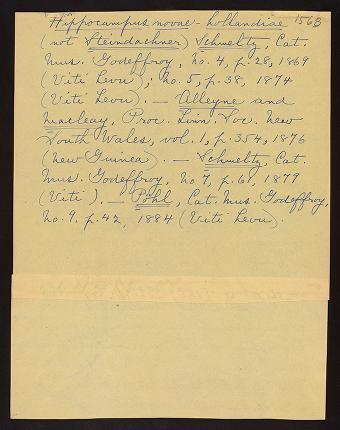 Hippocampus novae-hollandiae 1568
(not Steindachner) Schmeltz, Cat.
Mus. Godeffroy, no. 4, p. 28, 1869
(Viti Levu); no. 5, p. 38, 1874
(Viti Levu). — Alleyne and
Macleay, Proc. Linn. Soc. New
South Wales, vol. 1, p. 354, 1876
(New Guinea). — Schmeltz, Cat.
Mus. Godeffroy, no 7, p. 61, 1879
(Viti). — Pohl, Cat. Mus. Godeffroy,
no. 9, p. 42, 1884 (Viti Levu).